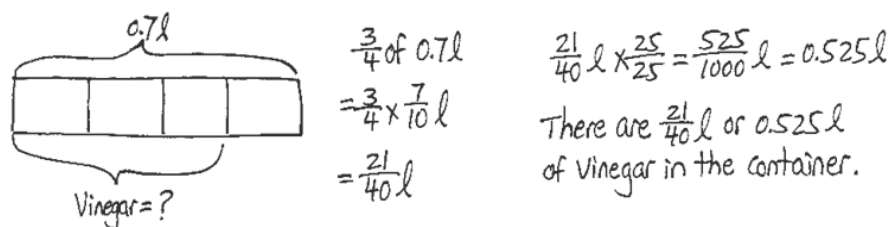 0.7l
Vinegar = ?
3/4 of 0.7l
= 3/4 × 7/10 l
= 21/40 l
21/40 l × 25/25 = 525/1000 l = 0.525l
There are 21/40 l or 0.525l
of Vinegar in the container.